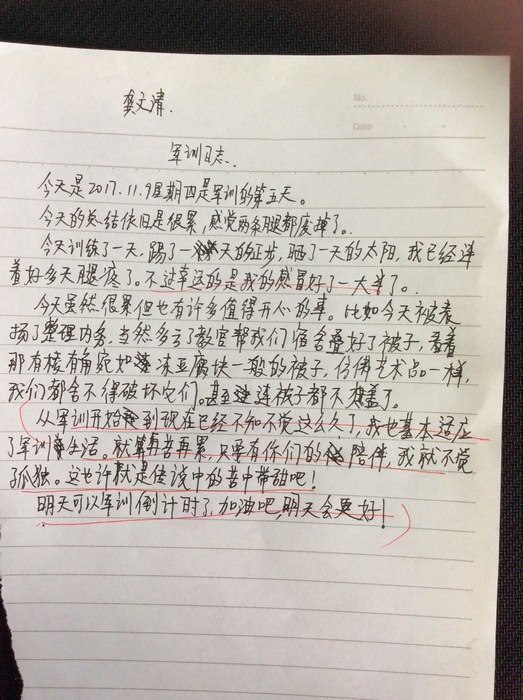 No.
Date
龚文清.
军训日志.
今天是2017.11.9星期四是军训的第五天。
今天的总结依旧是很累,感觉两条腿都废掉了。
今天训练了一天,踢了一天的正步,晒了一天的太阳,我已经详
着好多天腿疼了。不过幸运的是我的感冒好了一大半了。
今天虽然很累但也有许多值得开心的事。比如今天被表
扬了整理内务,当然多亏了教官帮我们宿舍叠好了被子,看着
那有棱有角宛如冻豆腐块一般的被子,仿佛艺术品一样,
我们都舍不得破坏它们。甚至连被子都不想盖了。
从军训开始到现在已经不知不觉这么久了,我也基本适应
了军训生活。就算再苦再累,只要有你们的陪伴,我就不觉
孤独。这也许就是传说中的苦中带甜吧!
明天可以军训倒计时了,加油吧,明天会更好!